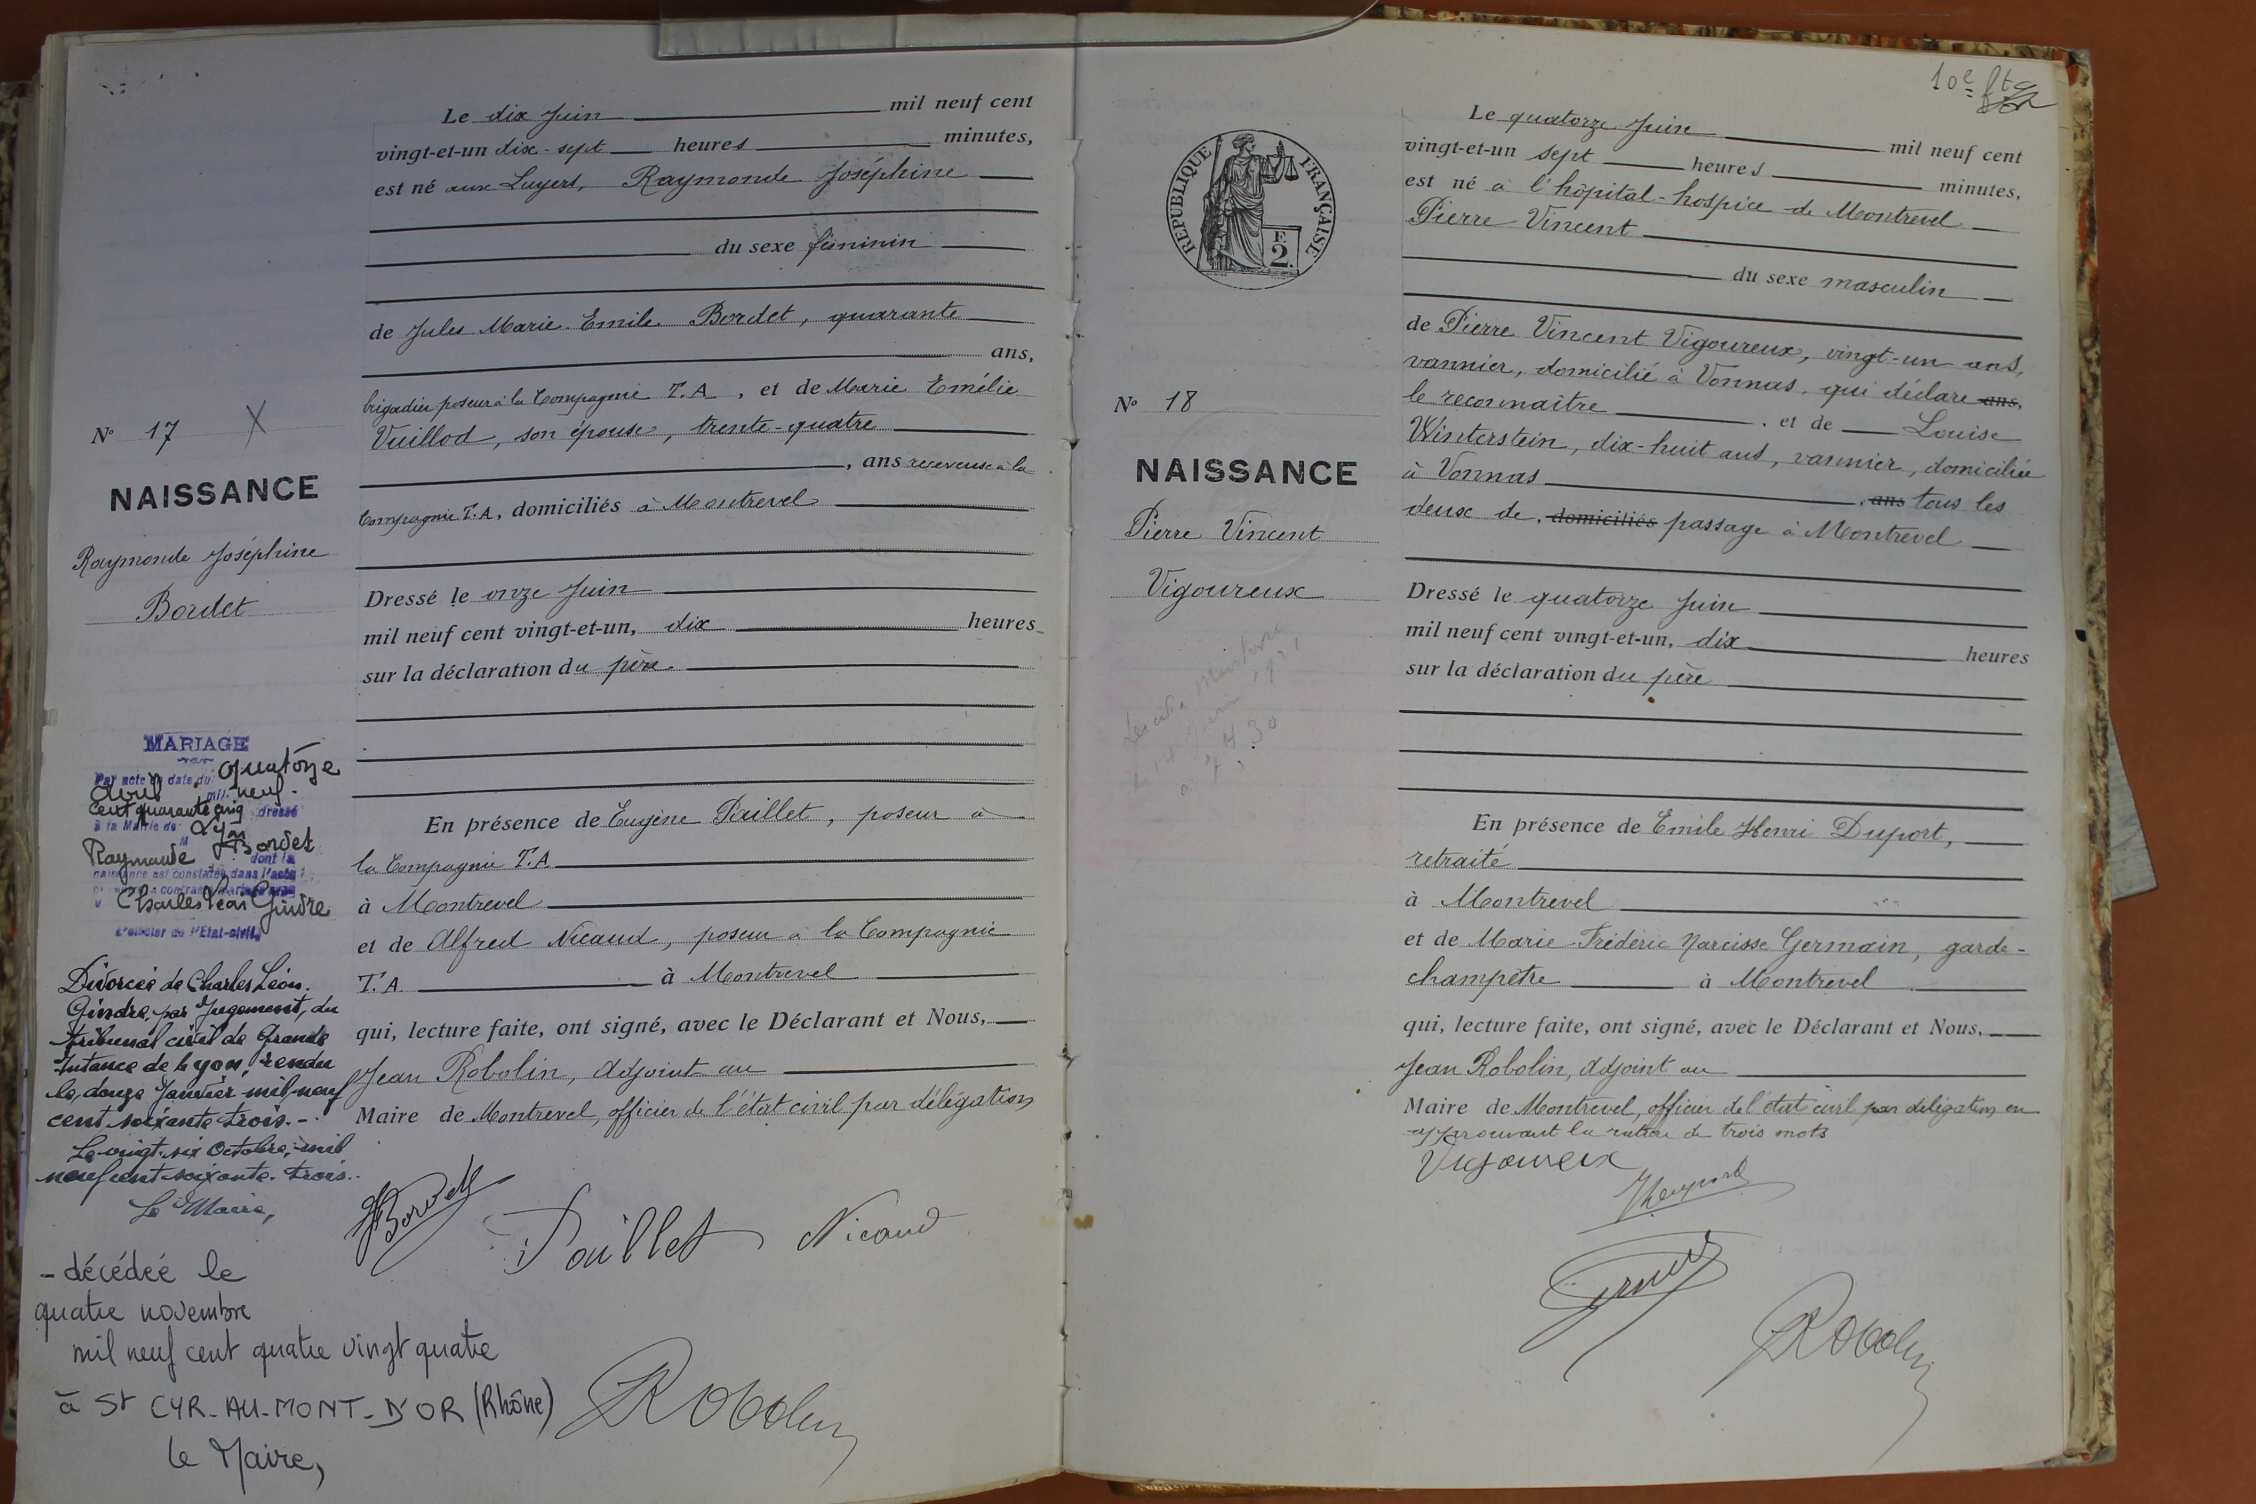 Le dix Juin mil neuf cent
vingt-et-un dix-sept heures minutes,
est né aux Luyers, Raymonde Joséphine
du sexe féminin
de Jules Marie Emile Bordet, quarante
ans,
brigadier poseur à la Compagnie T.A, et de Marie Emélie
Vuillod, son épouse, trente-quatre
, ans receveuse à la
Compagnie T.A, domiciliés à Montrevel
Dressé le onze Juin
mil neuf cent vingt-et-un, dix heures
sur la déclaration du père.
En présence de Eugène Paillet, poseur à
la Compagnie T.A
à Montrevel
et de Alfred Nicaud, poseur à la Compagnie
T.A à Montrevel
qui, lecture faite, ont signé, avec le Déclarant et Nous,
Jean Robolin, Adjoint au
Maire de Montrevel, officier de l'état civil par délégation
Bordet
Paillet
Nicaud
Robolin
N° 17 X
NAISSANCE
Raymonde Joséphine
Bordet
MARIAGE
Par acte en date du quatorze
Avril mil neuf
cent quarante cinq dressé
à la Mairie de Lyon
M Bordet
Raymonde dont la
naissance est constatée dans l'acte
contracté mariage avec
Charles Léon Gindre
L'officier de l'Etat-civil,
Divorcée de Charles Léon.
Gindre, par Jugement, du
tribunal civil de Grande
Intance de Lyon, rendu
le, douze Janvier mil neuf
cent soixante trois.-
Le vingt-six Octobre, mil
neuf cent soixante-trois.
Le Maire,
- décédée le
quatre novembre
mil neuf cent quatre vingt quatre
à St CYR-AU-MONT-D'OR (Rhône)
Le Maire,
10e
REPUBLIQUE FRANÇAISE
F
2.
Le quatorze Juin mil neuf cent
vingt-et-un sept heures minutes,
est né à l'hôpital-hospice de Montrevel
Pierre Vincent
du sexe masculin
de Pierre Vincent Vigoureux, vingt-un ans,
vannier, domicilié à Vonnas, qui déclare ans,
le reconnaître, et de Louise
Winterstein, dix-huit ans, vannier, domiciliée
à Vonnas, ans tous les
deux de, domiciliés passage à Montrevel
Dressé le quatorze Juin
mil neuf cent vingt-et-un, dix heures
sur la déclaration du père
En présence de Emile Henri Duport,
retraité
à Montrevel
et de Marie Frédéric Narcisse Germain, garde-
champêtre à Montrevel
qui, lecture faite, ont signé, avec le Déclarant et Nous,
Jean Robolin, Adjoint au
Maire de Montrevel, officier de l'état civil par délégation en
approuvant la rature de trois mots
Vigoureux
Robolin
N° 18
NAISSANCE
Pierre Vincent
Vigoureux